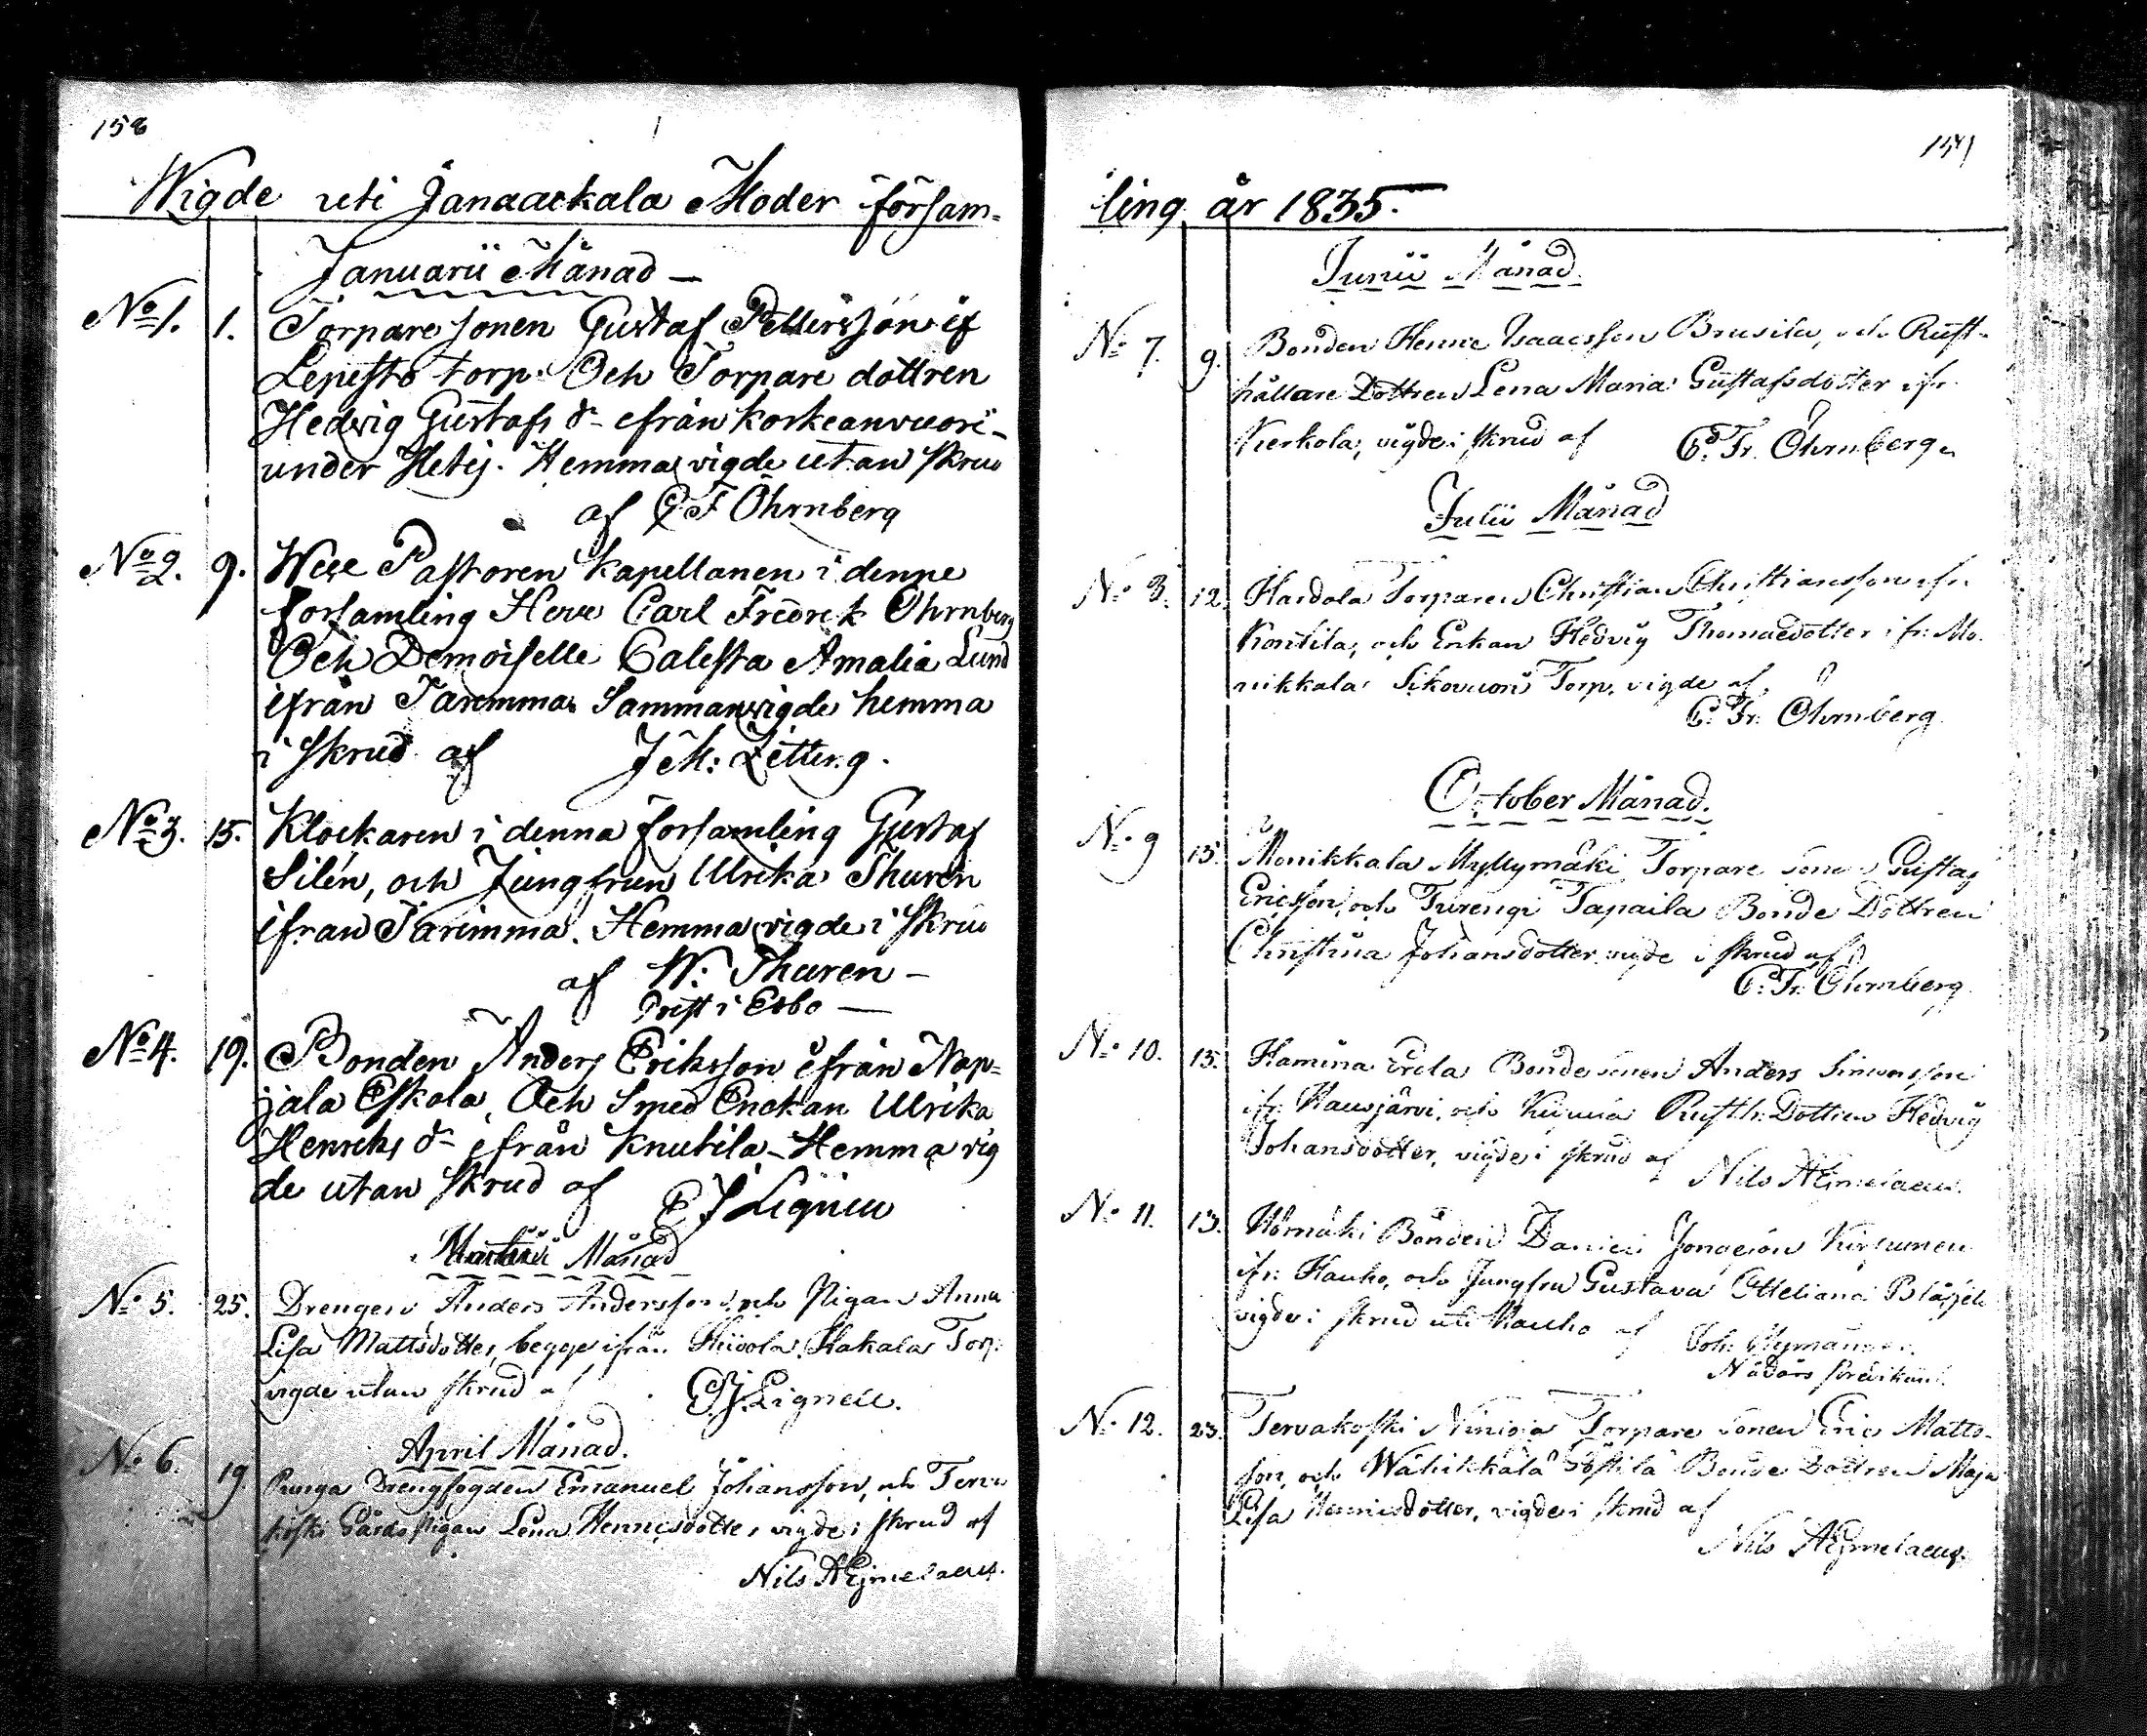 158
Wigde uti Janaackala Moder försam-
Januarii Månad —
No 1. 1. Torpare sonen Gustaf Pettersson if
Lepistö torp. Och Torpare dottren
Hedvig Gustafs dr ifrån korkeanvuori
under Hetij. Hemma vigde utan skrud
af C F Öhrnberg
No 2. 9. Wice Pastoren kapellanen i denne
forsamling Herr Carl Fredrek Öhrnberg
Och Demoiselle Calesta Amalia Lund
ifrån Tarimma Sammanvigde hemma
i skrud af Joh: Zitting.
No 3. 15. Klockaren i denna forsamling Gustaf
Silén, och Jungfrun Ulrika Thurén
ifran Tarimma. Hemma vigde i skrud
af W. Thuren —
Prest i Esbo —
No 4. 19. Bonden Anders Eriksson ifrån Nap-
jala Eskola, Och Smed Enckan Ulrika
Henriks dr ifrån Knutila - Hemma vig
de utan skrud af E J Lignell
Martii Månad
No 5. 25. Drengen Anders Andersson och Pigan Anna
Lisa Mattsdotter, begge ifrån Hakala Torp
vigde utan skrud af E. J. Lignell.
April Månad.
No 6. 19. Drengfogden Emanuel Johansson, och Terva
koski Gårds pigan Lena Henricsdotter vigde i skrud af
Nils Aejmelaeus.
ling år 1835.
Junii Månad.
No 7. 9. Bonden Henric Isaacsson Brusila, och Rust-
hållare Dottren Lena Maria Gustafsdotter ifr.
Kerkola, vigde i skrud af C. Fr. Öhrnberg.
Julii Månad
No 8. 12. Torparen Christian Christiansson ifr.
Konttila, och Enkan Hedvig Thomaedotter ifr. Mo-
nikkala Sikovuori Torp, vigde af
C. Fr. Öhrnberg
October Månad.
No 9 15. Monikkala Myllymäki Torpare sonen Gustaf
Ericsson, och Turengi Tapaila Bonde Dottren
Christina Johansdotter vigde i skrud af
C. Fr. Öhrnberg
No 10. 15. Bonde sonen Anders Simonsson
ifr. Hausjärvi, och Rusth. Dottren Hedvig
Johansdotter, vigde i skrud af Nils Aejmelaeus.
No 11. 13. Bonden Daniel
ifr. Hauho, och Jungfru Gustava
vigde i skrud uti Hauho af Joh.
Nådårs predikant.
No 12. 23. Tervakoski Torpare sonen Eric Matts-
son, och Wähikkälä Bonde Dottren Maja
Lisa Henricsdotter, vigde i skrud af
Nils Aejmelaeus.